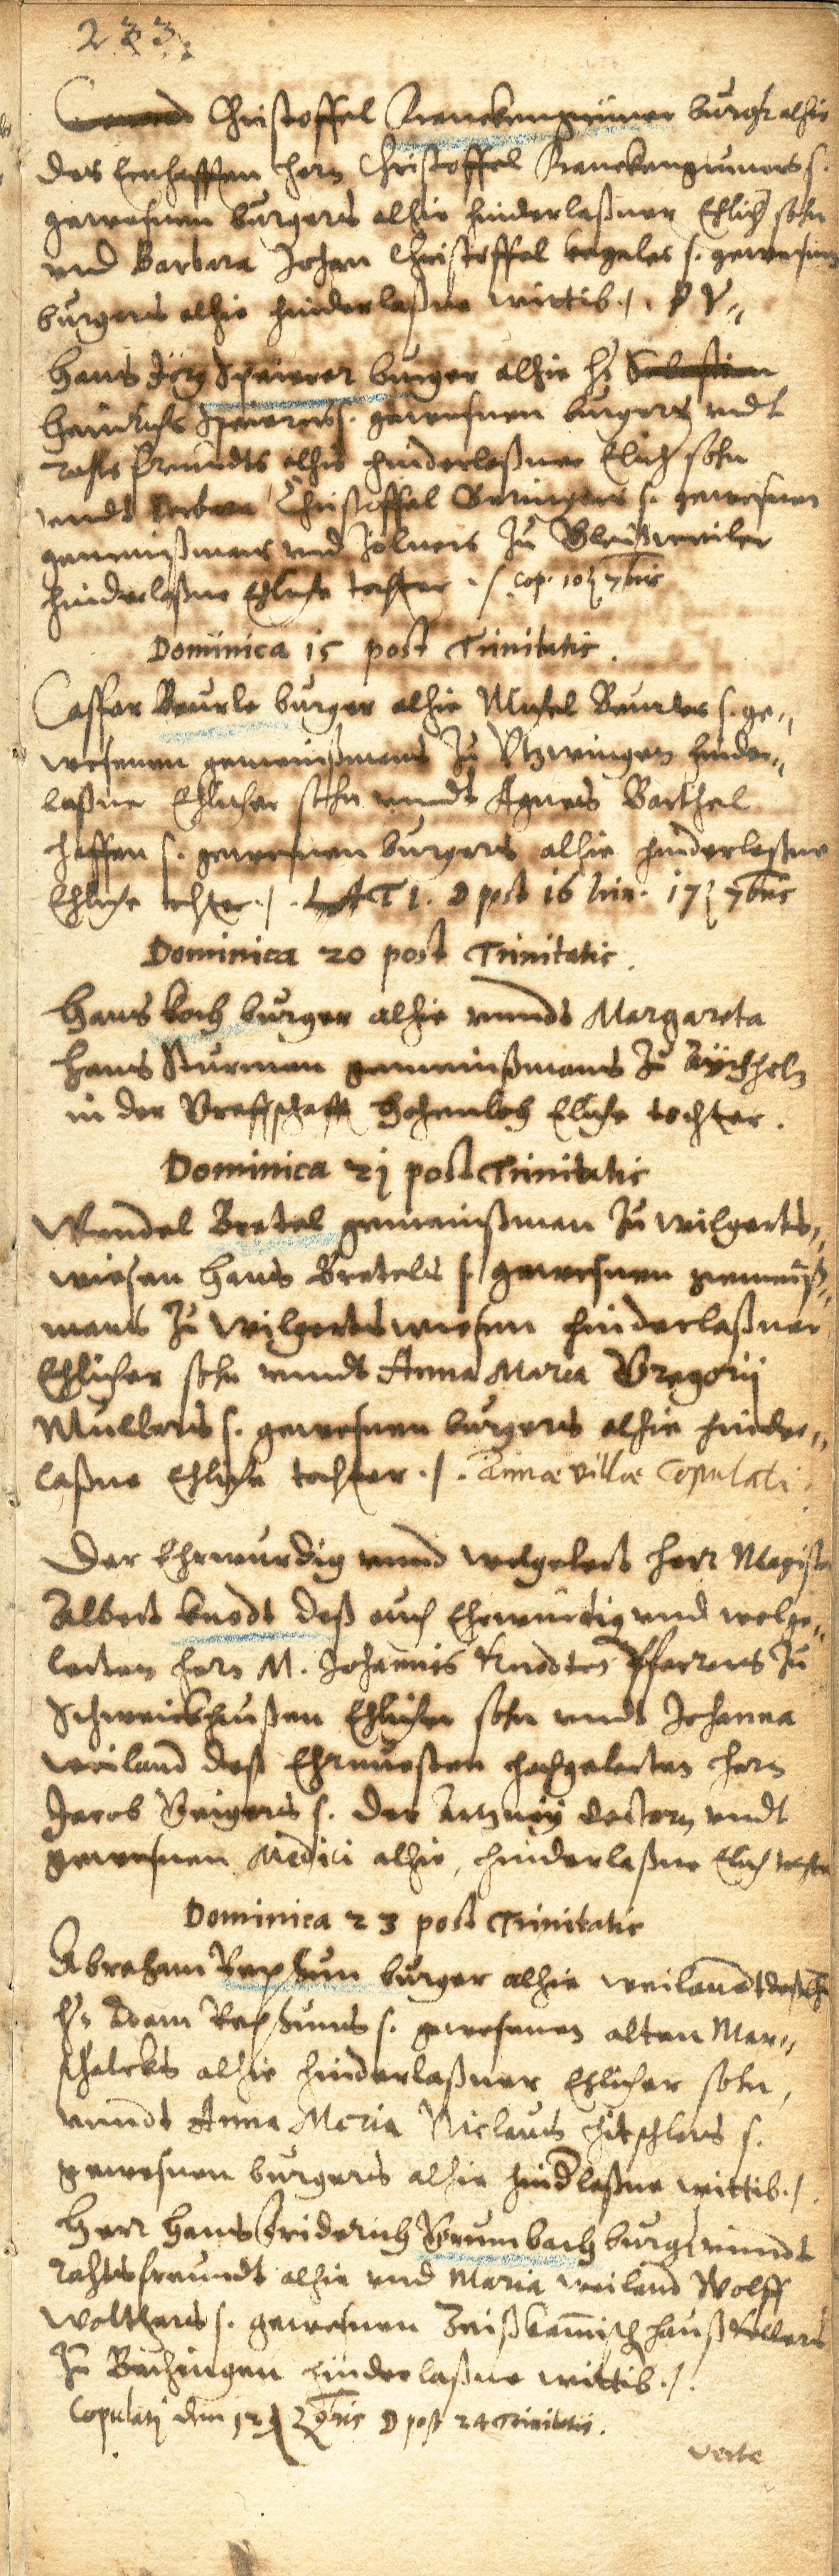 233.
Christoffel Kranckengrüner burgr alhie
des Ernhafften hern Christoffel Kranckengruners s.
gewesnen burgers alhie hinderlaßner Ehlich sohn
vnd Barbara Johan Christoffel s. gewesnen
burgers alhie hinderlaßne wittib ./.
Hans Jörg Speierer burger alhie Hr
Heinrichs Speierers s. gewesnen burgers vndt
rahts freundts alhie hinderlaßner Elich sohn
vndt Barbara Christoffel Beringers s. gewesnen
gemeinßmans vnd Zolners zu Bleißweiler
hinderlaßne Ehliche tochter ./. Cop. 10 7bris
Dominica 15 post Trinitatis.
Casper Beurle burger alhie Michel Beurles s. ge„
wesenen gemeinßmans zu hinder„
laßner Ehlicher sohn vnndt Agnes Barthel
s. gewesnen burgers alhie hinderlaßne
Ehliche tochter ./. D post 16 trin. 17 7bris
Dominica 20 post Trinitatis.
Hans Koch burger alhie vnndt Margareta
Hans Sturmen gemeinßmans zu
in der Graffschafft Hohenloh Eliche tochter.
Dominica 21 post Trinitatis
Wendel Bretel gemeinßman zu Wilgerts„
wiesen Hans Bretels s. gewesnen gemeinß„
mans zu Wilgertswiesen hinderlaßner
Ehlicher sohn vnndt Anna Maria Gregorij
Mullers s. gewesnen burgers alhie hinder„
laßne Ehliche tochter ./. Annæ villæ Copulati.
Der Ehrwurdig vnnd wolgelert herr Magister
Albert Knodt deß auch Ehrwurdig vnd wolge„
lerten hern M. Johannis Knodten Pfarrers zu
Schweickhaußen Ehlicher sohn vndt Johanna
weiland deß Ehrnuesten hochgelerten hern
Jacob Geigers s. der Artzney doctorn vndt
gewesnen Medici alhie, hinderlaßne Elich tochter
Dominica 23 post Trinitatis
Abraham burger alhie weilandt
Hr Adam s. gewesenen alten Mar„
schalcks alhie hinderlaßner Ehlicher sohn,
vnndt Anna Maria Niclaus s.
gewesnen burgers alhie hindlaßne wittib ./.
Herr Hans Friderich Brumbach burger vnndt
rahtsfreundt alhie vnd Maria weiland Wolff
Wolthers s. gewesnen haußkellers
zu Böchingen hinderlaßne wittib ./.
Copulati den 12 D post 24 Trinitatis.
verte